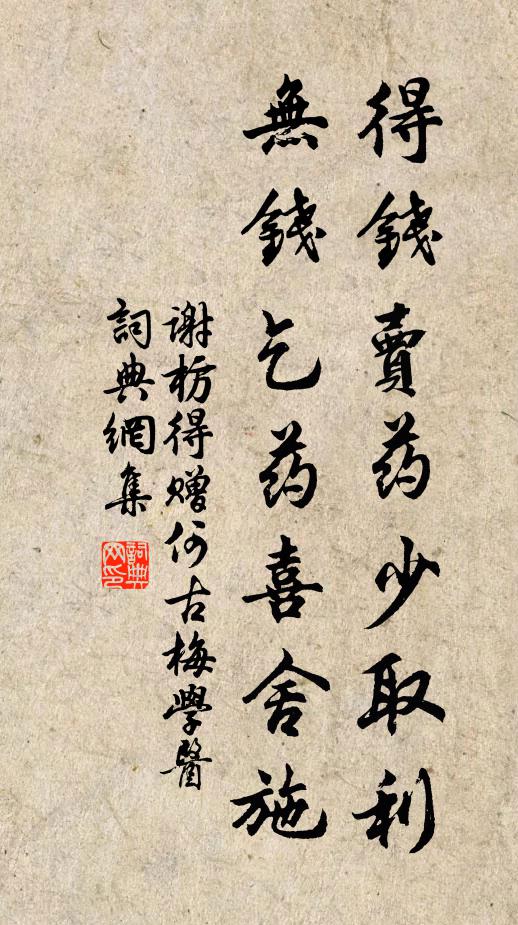 得錢賣药少取利
無錢乞药喜舍施
谢枋得赠何古梅學醫
詞典網集
詞典
网印